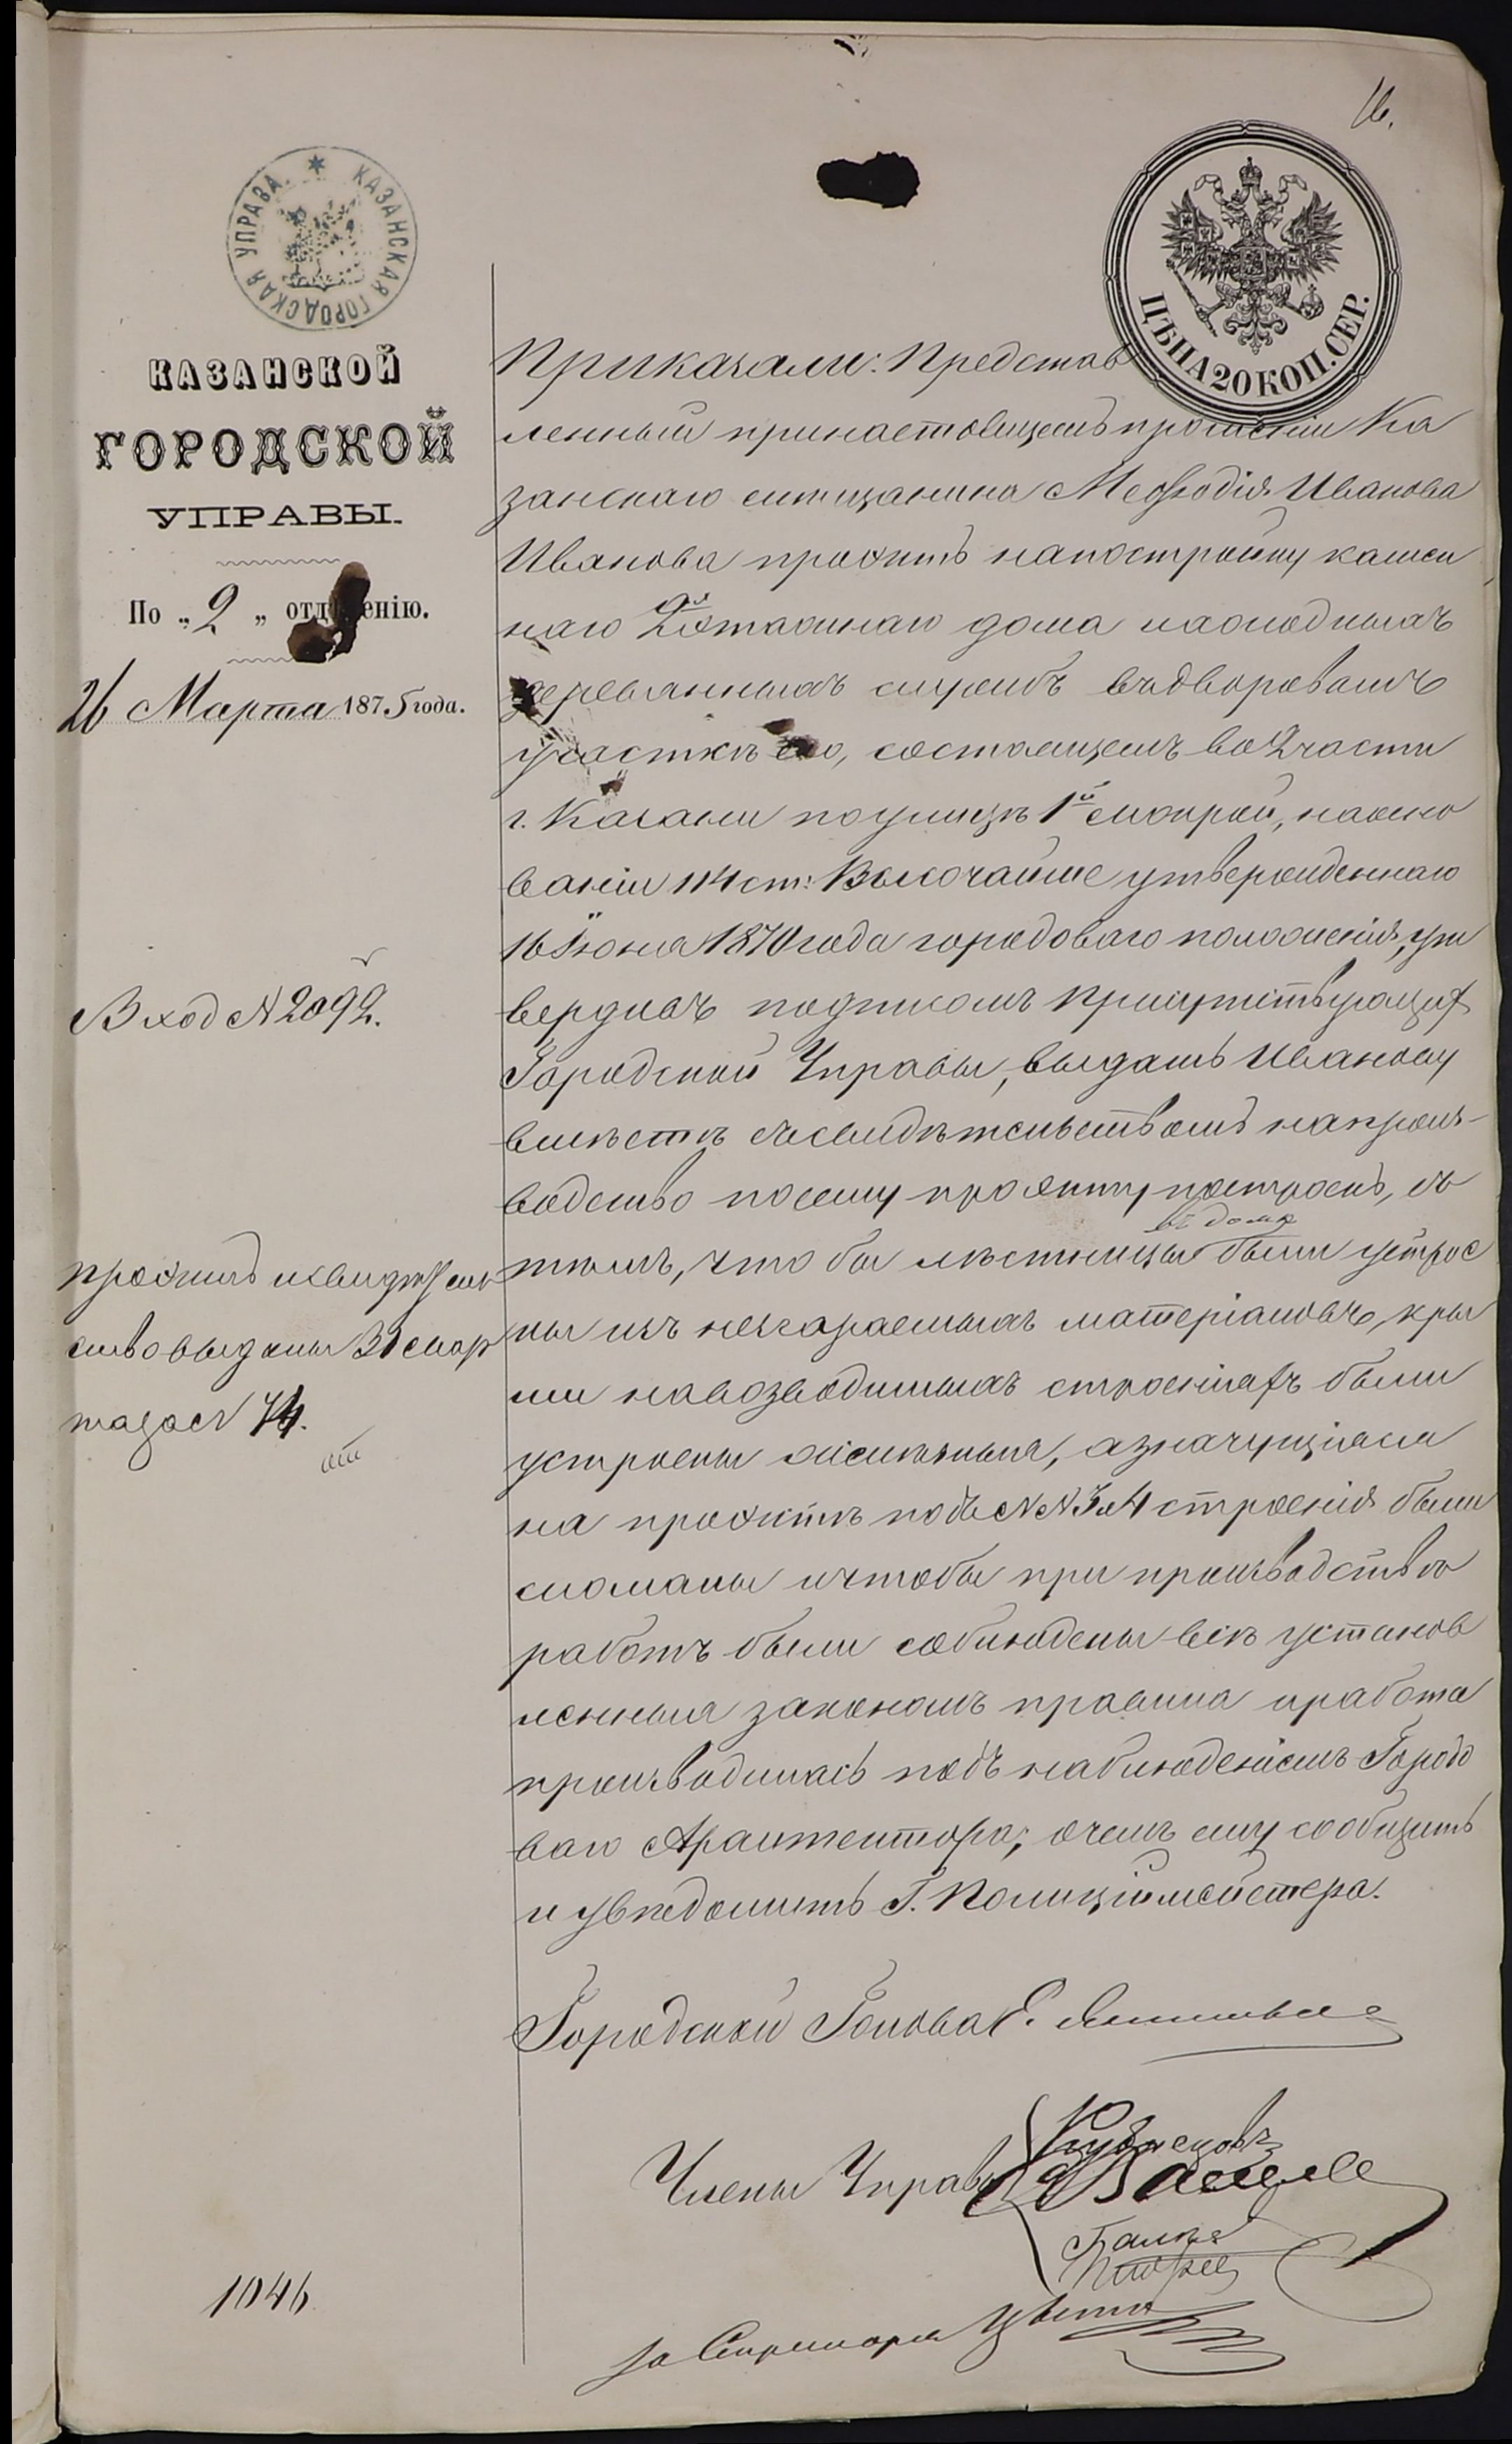 16.
КАЗАНСКАЯ ГОРОДСКАЯ УПРАВА.
ЦѢНА 20 КОП. СЕР.
КАЗАНСКОЙ
ГОРОДСКОЙ
УПРАВЫ.
По „2„ отдѣленію.
26 Марта 1875 года.
Вход N 2092.
проэктъ и свидѣтель
ство выданы 31 мар
та за N 74.
1046
Приказали: Представ
ленный при настоящемъ прошеніи Ка
занскаго мѣщанина Меѳодія Иванова
Иванова проэктъ на постройку камен
наго 2хъ этажнаго дома и холодныхъ
деревянныхъ службъ въ дворовомъ
участкѣ его, состоящемъ во 2 части
г. Казани по улицѣ 1й мокрой, на осно
ваніи 114 ст: Высочайше утвержденнаго
16 Іюня 1870 года городоваго положенія, ут
вердивъ подписомъ присутствующих
Городской Управы, выдать Иванову
вмѣстѣ съ свидѣтельствомъ на произ-
водство по сему проэкту построекъ, съ
тѣмъ, что бы лѣстницы въ домѣ были устрое
ны изъ несгораемыхъ матеріаловъ, кры
ши на возводимыхъ строеніяхъ были
устроены желѣзныя, а значущіяся
на проэктѣ подъ NN 3 и 4 строенія были
сломаны и чтобы при производствѣ
работъ были соблюдены всѣ установ
ленныя закономъ правила и работа
производилась подъ наблюденіемъ Городо
ваго Архитектора; о чемъ ему сообщить
и увѣдомить Г. Полиціймейстера.
Городской Голова Е.
Члены Управы
Кузнецовъ
за Секретаря